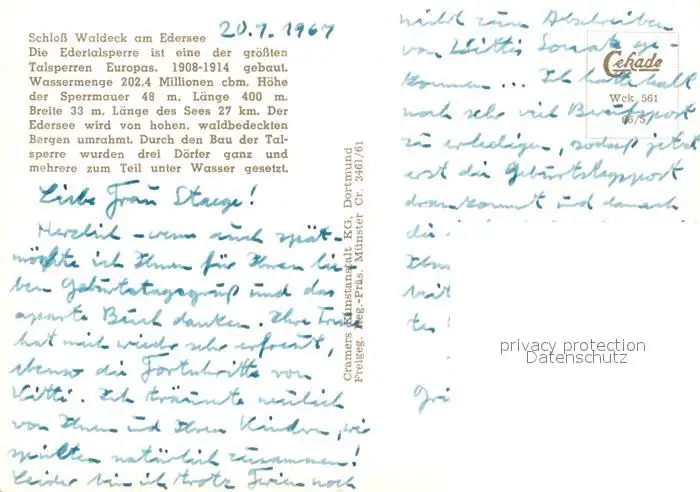 Schloß Waldeck am Edersee
Die Edertalsperre ist eine der größten
Talsperren Europas. 1908-1914 gebaut.
Wassermenge 202,4 Millionen cbm. Höhe
der Sperrmauer 48 m, Länge 400 m.
Breite 33 m. Länge des Sees 27 km. Der
Edersee wird von hohen, waldbedeckten
Bergen umrahmt. Durch den Bau der Tal-
sperre wurden drei Dörfer ganz und
mehrere zum Teil unter Wasser gesetzt.
20.7. 1967
Liebe Frau Staege!
Herzlich - wenn auch spät-
möchte ich Ihnen für Ihren lie-
ben Geburtstagsgruß und das
aparte Buch danken. Ihre
hat mich wieder sehr erfreut,
ebenso die Fortschritte von
Kitti. Ich träumte neulich
von Ihnen und Ihren Kindern, wir
spielten natürlich zusammen!
Leider bin ich trotz Ferien noch
Cramers Kunstanstalt KG, Dortmund
Freigeg. Reg.-Präs. Münster Cr. 3461/61
nicht zum Abschreiben
von Kittis Sonate ge-
kommen ... Ich hatte halt
noch sehr viel Berufspost
zu erledigen, sodaß jetzt
erst die Geburtstagspost
drankommt und danach
die
Ihn
tes
Cekade
Wck 561
66/5
privacy protection
Datenschutz